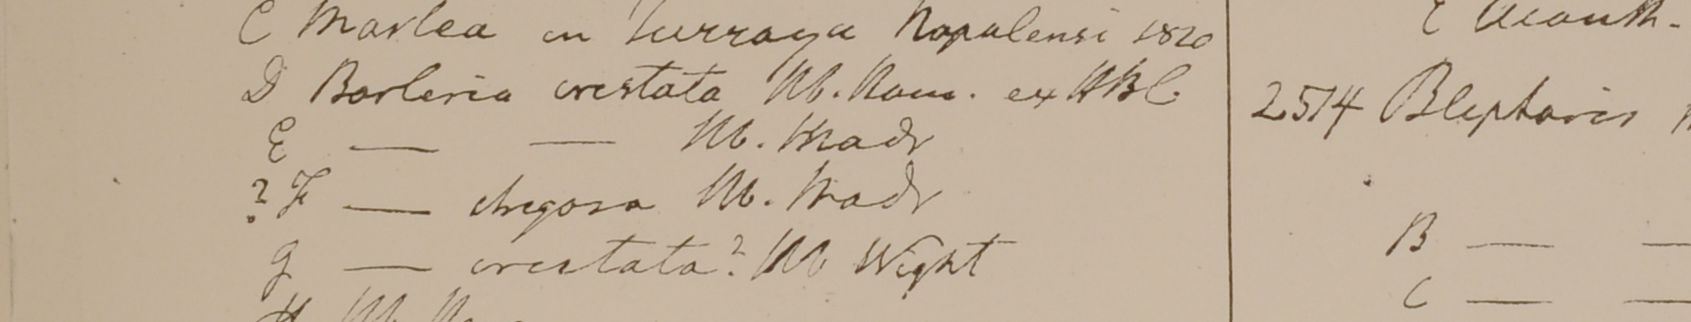 C Marlea in Turraya Napalensi 1820
D Barleria cristata Hb. Ham. ex HBC.
E — — Hb. Madr
?F — strigosa Hb. Madr
G — cristata? Hb Wight
H Hb.
E Acanth.
2514 Blepharis
B — —
C — —